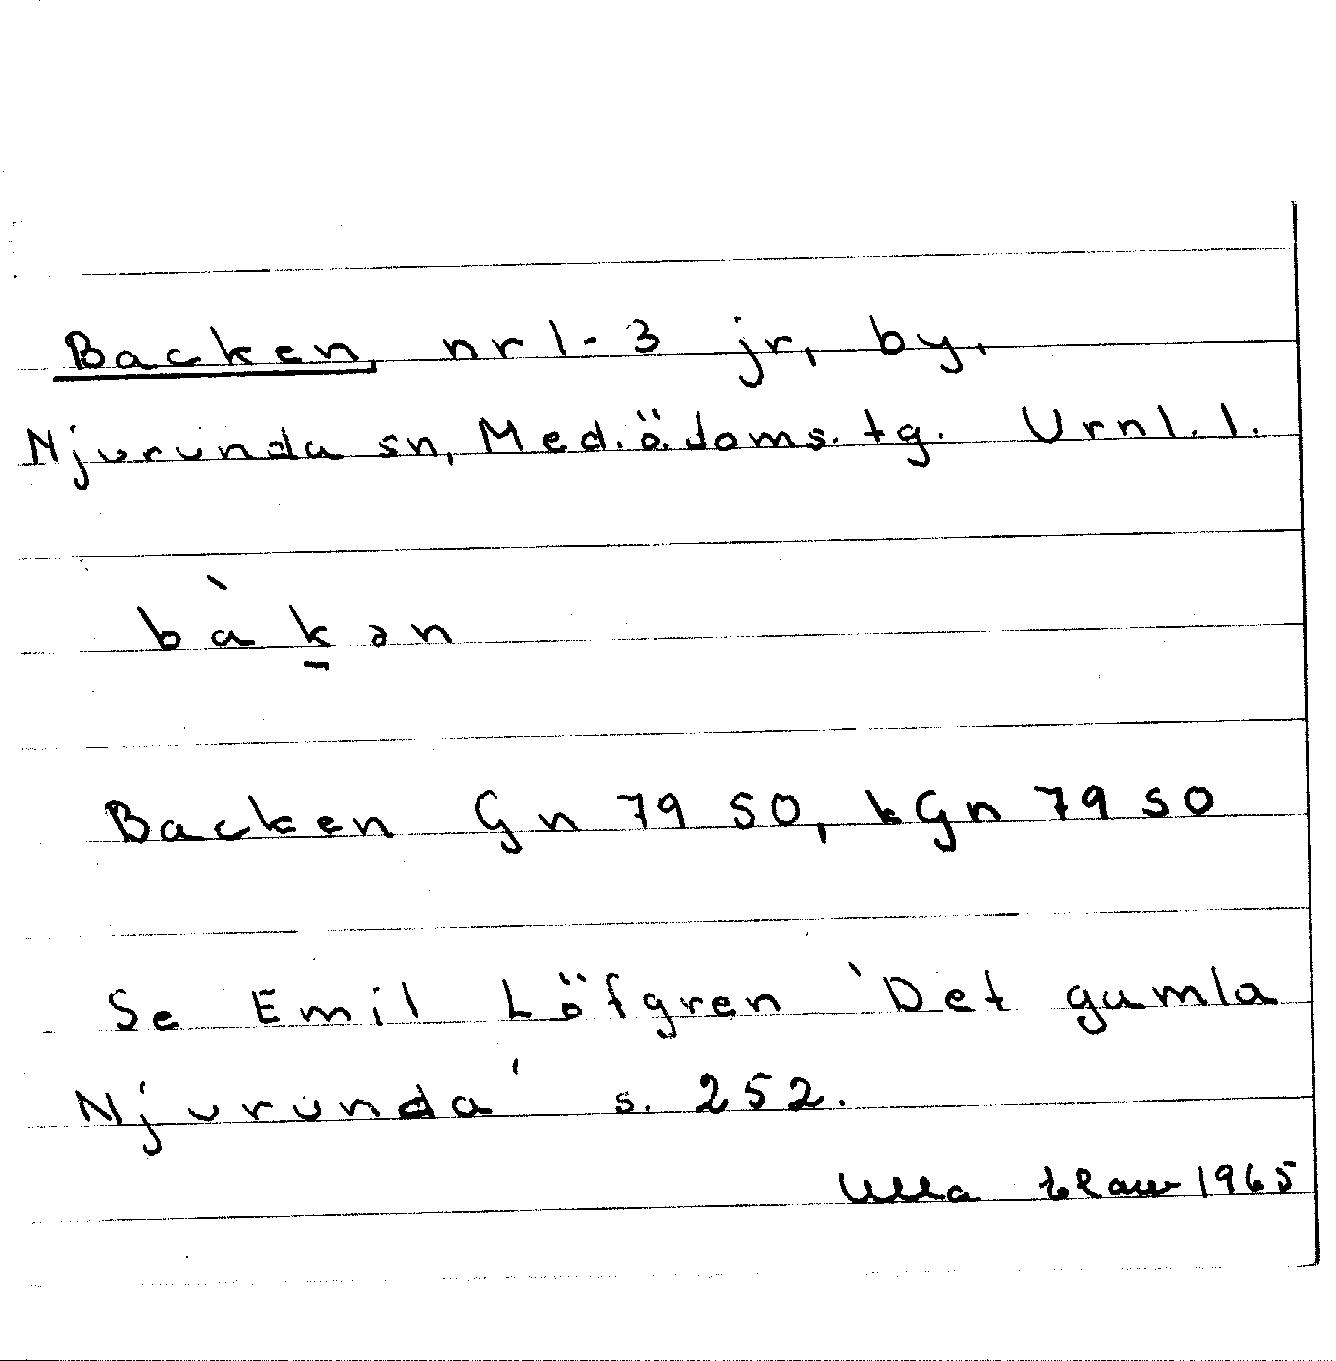 Backen, nr 1-3 jr, by,
Njurunda sn, Med.ö.doms.tg. Vrnl.l.
bàk̠ən
Backen Gn 79 SO, kGn 79 SO
Se Emil Löfgren 'Det gamla
Njurunda' s. 252.
Ulla 1965